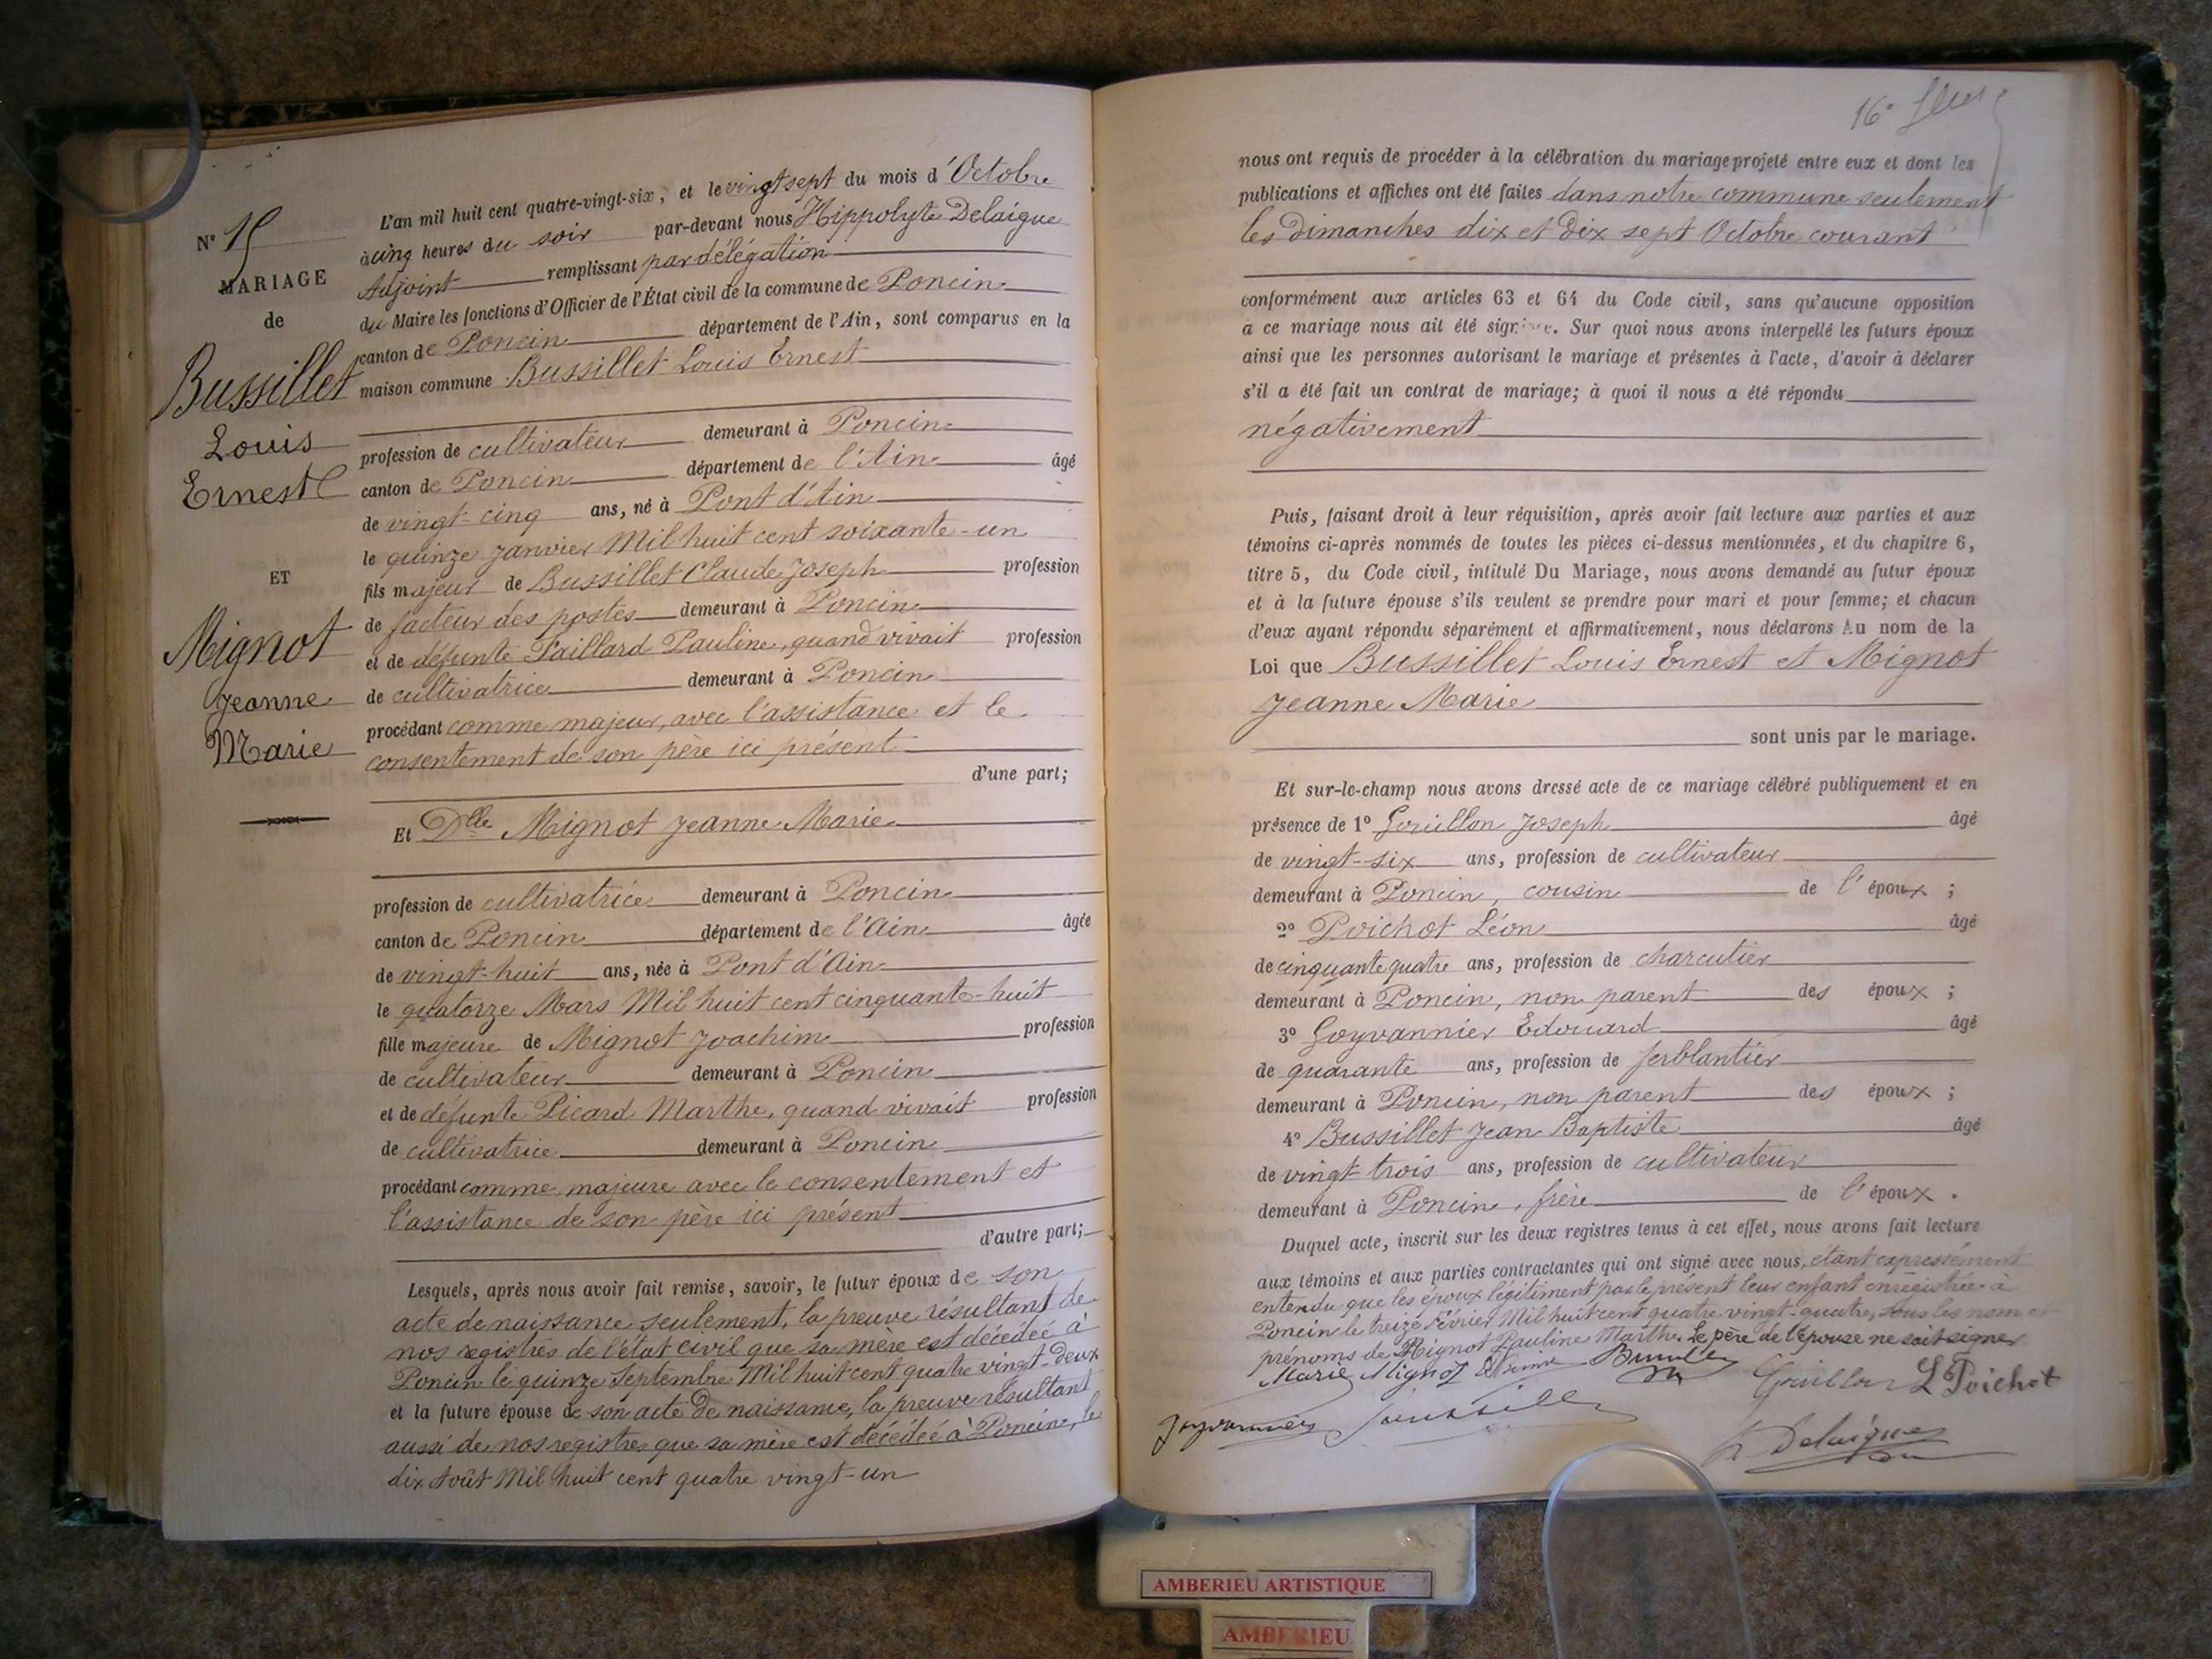 N° 15
MARIAGE
de
Bussillet
Louis
Ernest
ET
Mignot
Jeanne
Marie
L'an mil huit cent quatre-vingt-six, et le vingt sept du mois d'Octobre
à cinq heures du soir par-devant nous Hippolyte Delaigue
Adjoint remplissant par délégation
du Maire les fonctions d'Officier de l'État civil de la commune de Poncin
canton de Poncin département de l'Ain, sont comparus en la
maison commune Bussillet Louis Ernest
profession de cultivateur demeurant à Poncin
canton de Poncin département de l'Ain âgé
de vingt-cinq ans, né à Pont d'Ain
le quinze Janvier Mil huit cent soixante-un
fils majeur de Bussillet Claude Joseph profession
de facteur des postes demeurant à Poncin
et de défunte Faillard Pauline, quand vivait profession
de cultivatrice demeurant à Poncin
procédant comme majeur, avec l'assistance et le
consentement de son père ici présent
d'une part;
Et Dlle Mignot Jeanne Marie
profession de cultivatrice demeurant à Poncin
canton de Poncin département de l'Ain âgée
de vingt-huit ans, née à Pont d'Ain
le quatorze Mars Mil huit cent cinquante-huit
fille majeure de Mignot Joachim profession
de cultivateur demeurant à Poncin
et de défunte Picard Marthe, quand vivait profession
de cultivatrice demeurant à Poncin
procédant comme majeure avec le consentement et
l'assistance de son père ici présent
d'autre part;
Lesquels, après nous avoir fait remise, savoir, le futur époux de son
acte de naissance seulement, la preuve résultant de
nos registres de l'état civil que sa mère est décédée à
Poncin le quinze Septembre Mil huit cent quatre vingt-deux
et la future épouse de son acte de naissance, la preuve résultant
aussi de nos registres que sa mère est décédée à Poncin, le
dix Août Mil huit cent quatre vingt-un
16e
nous ont requis de procéder à la célébration du mariage projeté entre eux et dont les
publications et affiches ont été faites dans notre commune seulement
les Dimanches dix et Dix sept Octobre courant
conformément aux articles 63 et 64 du Code civil, sans qu'aucune opposition
à ce mariage nous ait été signifiée. Sur quoi nous avons interpellé les futurs époux
ainsi que les personnes autorisant le mariage et présentes à l'acte, d'avoir à déclarer
s'il a été fait un contrat de mariage; à quoi il nous a été répondu
négativement
Puis, faisant droit à leur réquisition, après avoir fait lecture aux parties et aux
témoins ci-après nommés de toutes les pièces ci-dessus mentionnées, et du chapitre 6,
titre 5, du Code civil, intitulé Du Mariage, nous avons demandé au futur époux
et à la future épouse s'ils veulent se prendre pour mari et pour femme; et chacun
d'eux ayant répondu séparément et affirmativement, nous déclarons Au nom de la
Loi que Bussillet Louis Ernest et Mignot
Jeanne Marie
sont unis par le mariage.
Et sur-le-champ nous avons dressé acte de ce mariage célébré publiquement et en
présence de 1° Gouillon Joseph âgé
de vingt-six ans, profession de cultivateur
demeurant à Poncin, cousin de l'époux;
2° Poichot Léon âgé
de cinquante quatre ans, profession de charcutier
demeurant à Poncin, non parent des époux;
3° Goyvannier Edouard âgé
de quarante ans, profession de ferblantier
demeurant à Poncin, non parent des époux;
4° Bussillet Jean Baptiste âgé
de vingt trois ans, profession de cultivateur
demeurant à Poncin, frère de l'époux.
Duquel acte, inscrit sur les deux registres tenus à cet effet, nous avons fait lecture
aux témoins et aux parties contractantes qui ont signé avec nous, étant expressément
entendu que les époux légitiment par le présent leur enfant enregistrée à
Poncin le treize Février Mil huit cent quatre vingt-quatre, sous les nom et
prénoms de Mignot Pauline Marthe. Le père de l'épouse ne sait signer
Marie Mignot
Gouillon L Poichot
Goyvannier
H Delaigue
AMBERIEU ARTISTIQUE
AMBERIEU